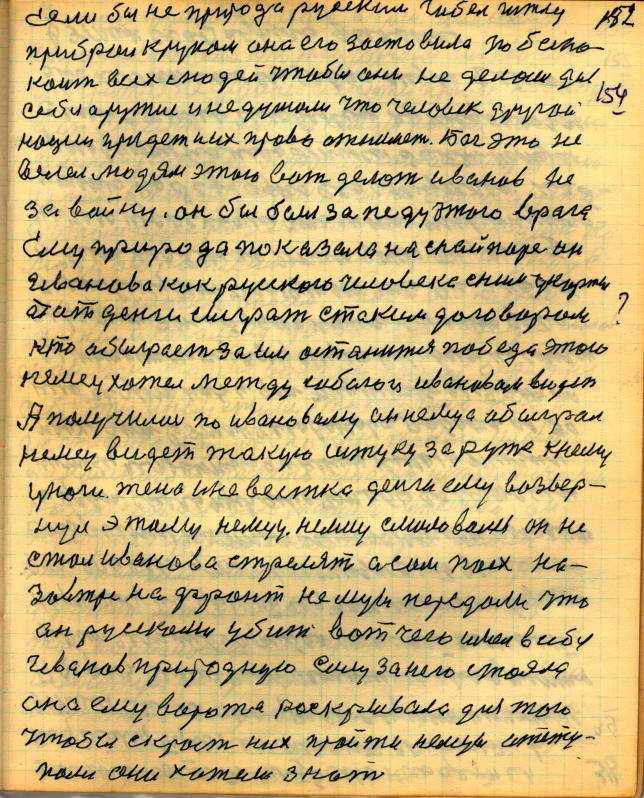 если бы не природа руским гибел гитлу 152
прибрал к рукам она его заставила по беспо-
коит всех людей чтобы они не делали для 154
себя аружие и не думали что человек другой
нации придет и их право отнимет. Бог это не
велел людям этого вот делот иванов не
за войну. он был болш за педужого врага
Ему природа показала на спайпоре он
Иванова как руского человека с ним
в деньги сыграт с таким договором ?
кто абыграет за им останится победа этого
немец хотел между собой и ивановам видет
А получилос по ивановаму он немца абыграл
немец видет такую штуку за руже к нему
у ноги. жена и невестка денги ему возвер-
нули этому немцу. немец смиловалс он не
стал иванова стрелят а сам поех на-
завтре на фронт немцы передали что
он рускими убит вот чего имел в себе
Иванов природную силу за него стояла
она ему ворота раскрывала для того
чтобы скрост них пройти немцы отсту-
пали они хотели знат